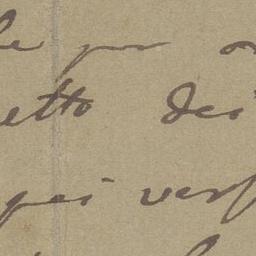 le per
etto dei
pei vers